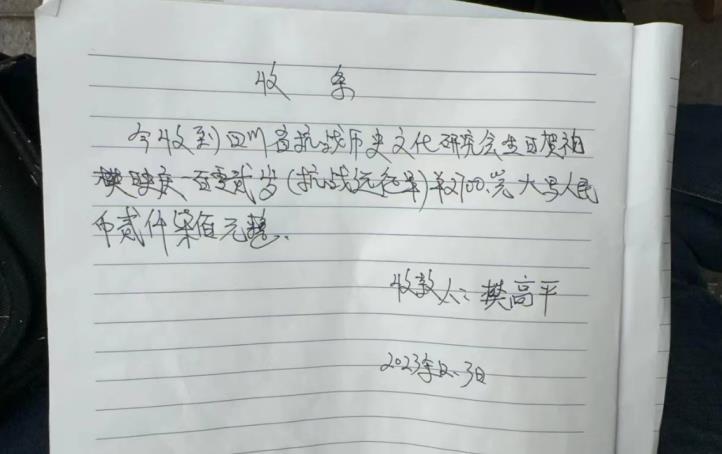 收 条
今收到四川省抗战历史文化研究会生日贺祝
樊映庚一百零贰岁(抗战远征军)¥2700.元 大写人民
币贰仟柒佰元整.
收款人:樊高平
2023年2.3日